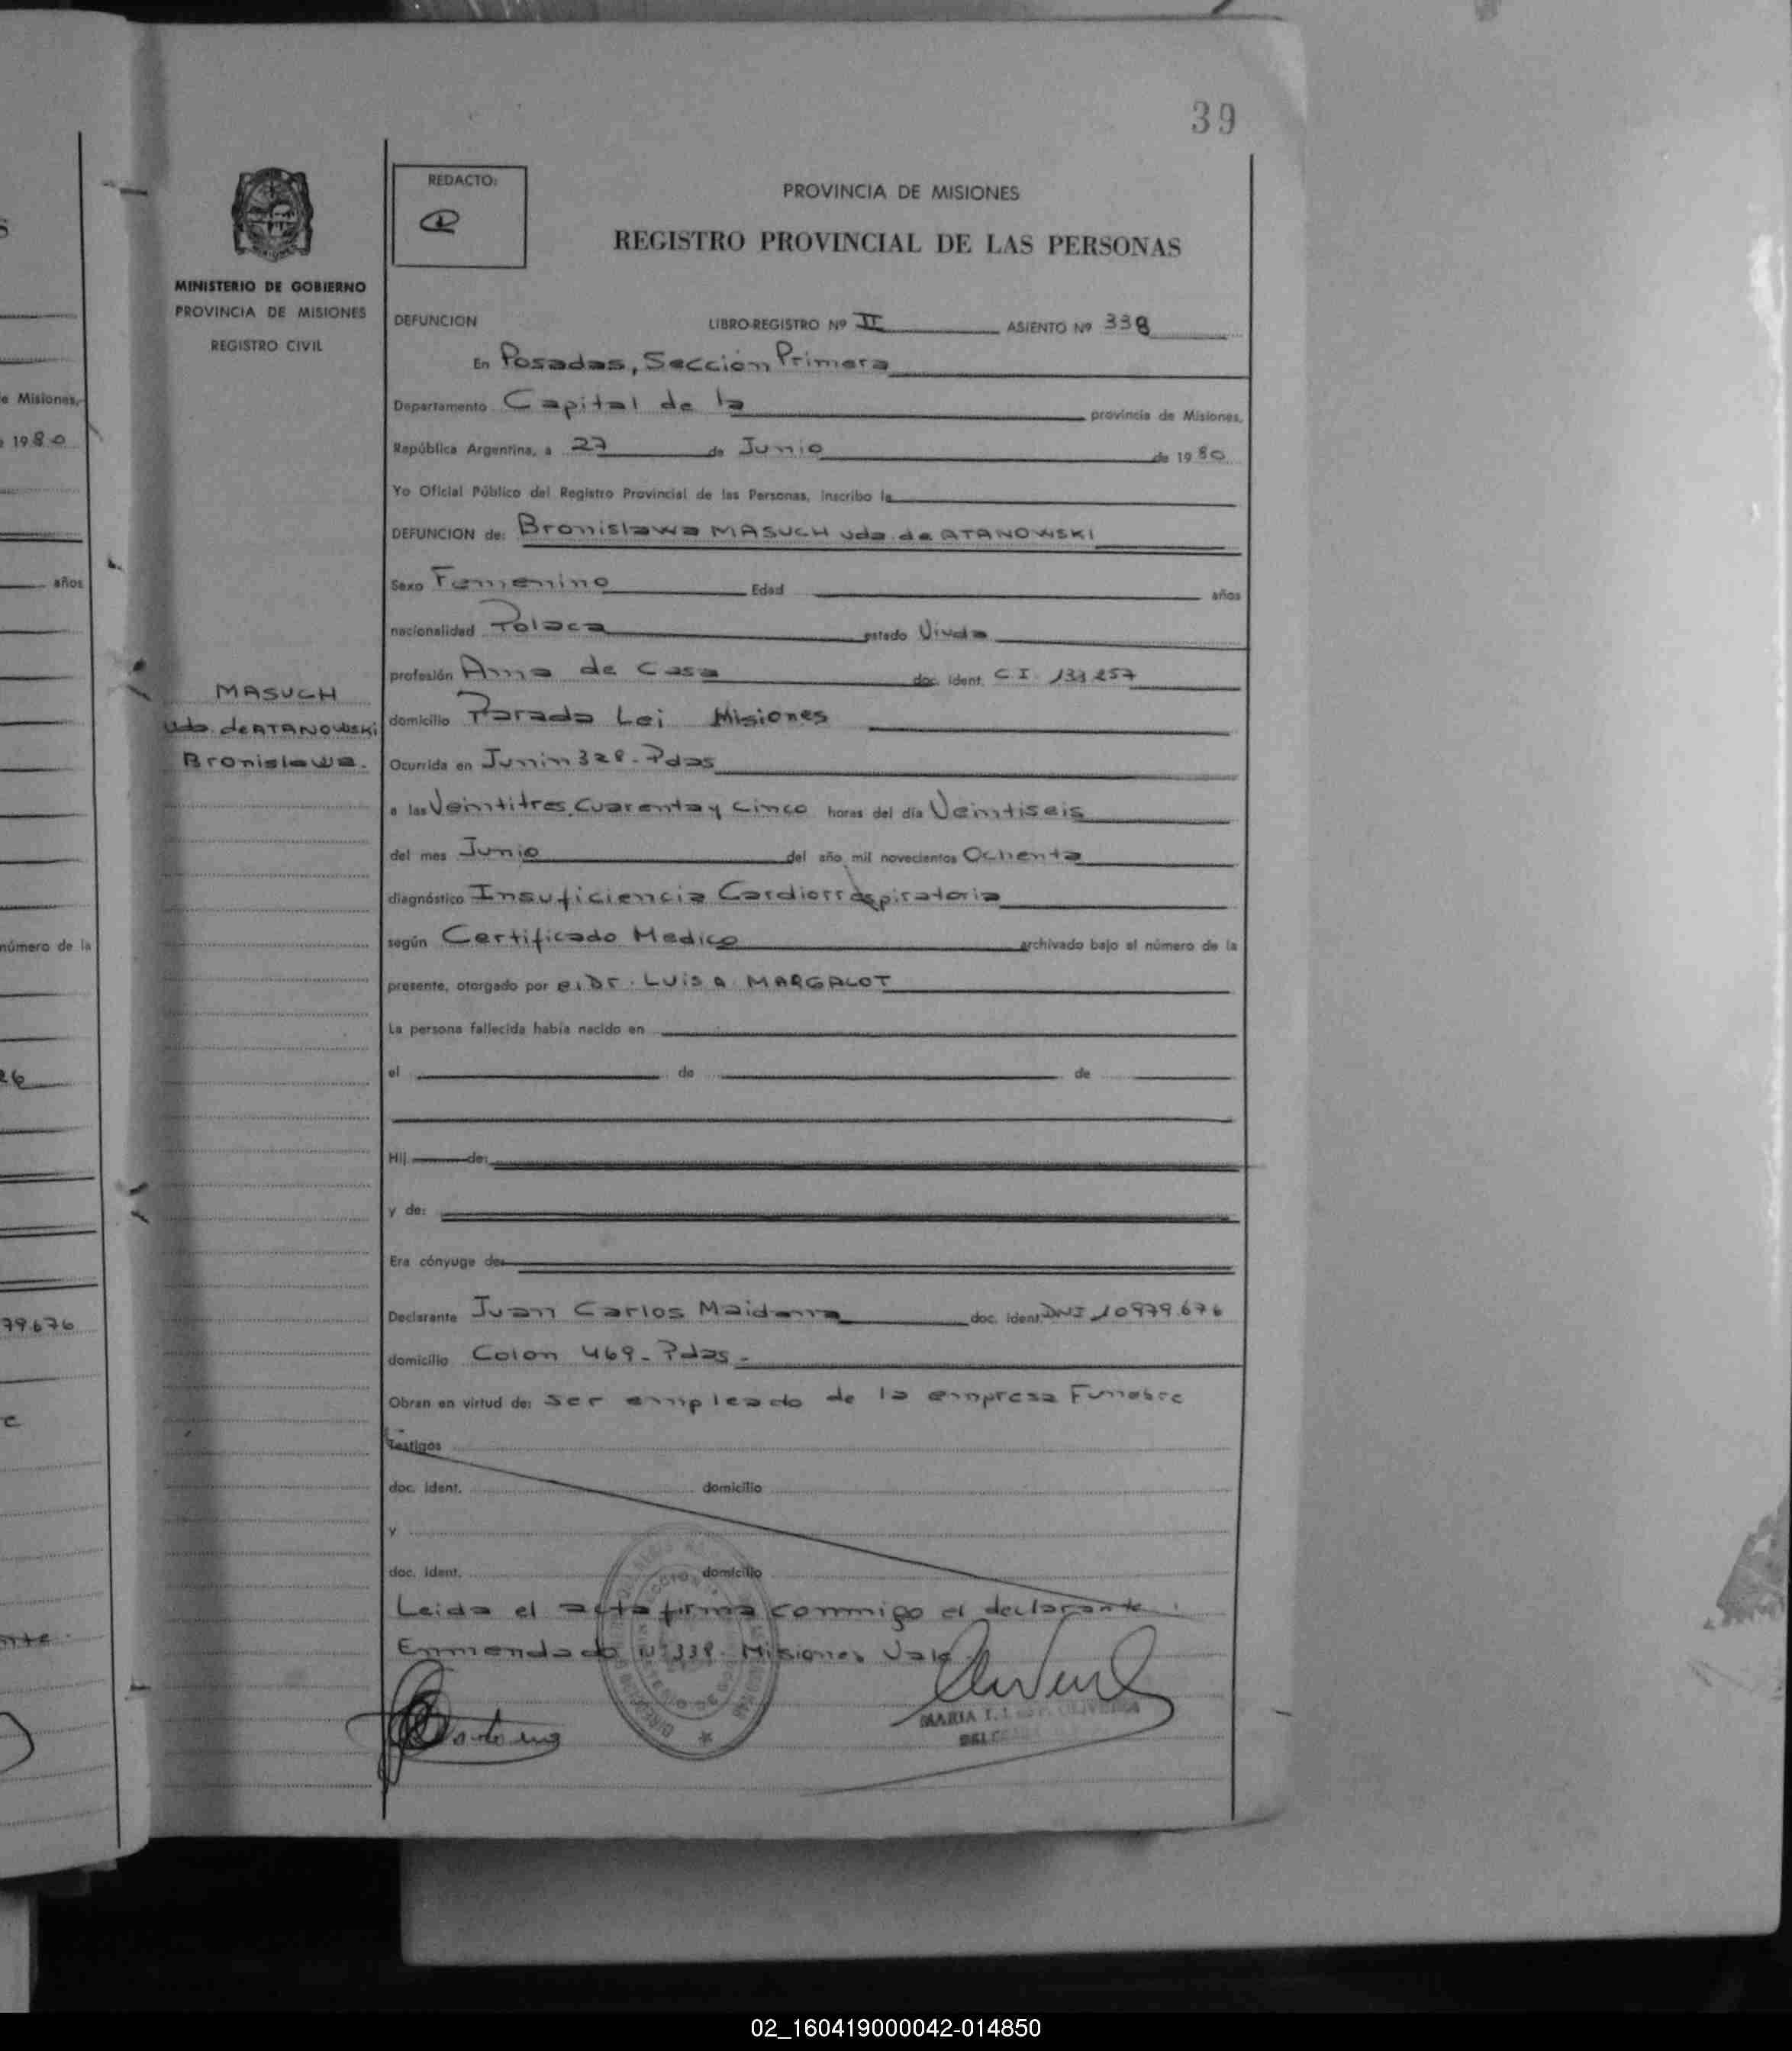 39
REDACTO:
PROVINCIA DE MISIONES
REGISTRO PROVINCIAL DE LAS PERSONAS
MINISTERIO DE GOBIERNO
PROVINCIA DE MISIONES
REGISTRO CIVIL
DEFUNCION LIBRO-REGISTRO Nº II ASIENTO Nº 338
En Posadas, Sección Primera
Departamento Capital de la provincia de Misiones,
República Argentina, a 27 de Junio de 1980
Yo Oficial Público del Registro Provincial de las Personas, inscribo la
DEFUNCION de: Bronislawa MASUCH vda. de ATANOWSKI
Sexo Femenino Edad años
nacionalidad Polaca estado Viuda
profesión Ama de Casa doc. ident. C.I. 133257
MASUCH
vda. de ATANOWSKI
Bronislawa.
domicilio Parada Lei Misiones
Ocurrida en Junin 328 - Pdas
a las Veintitres, Cuarenta y Cinco horas del día Veintiseis
del mes Junio del año mil novecientos Ochenta
diagnóstico Insuficiencia Cardiorrespiratoria
según Certificado Medico archivado bajo el número de la
presente, otorgado por el Dr. LUIS A. MARGALOT
La persona fallecida había nacido en
el de de
Hij de:
y de:
Era cónyuge de:
Declarante Juan Carlos Maidana doc. ident. DNI 10979.676
domicilio Colon 469 - Pdas -
Obran en virtud de: ser empleado de la empresa Funebre
Testigos
doc. ident. domicilio
y
doc. ident. domicilio
Leida el acta firma conmigo el declarante.
Enmendado Nº 338. Misiones Vale
MARIA T. OLIVEIRA
e Misiones,
1980
años
número de la
26
79.676
nte.
02_160419000042-014850